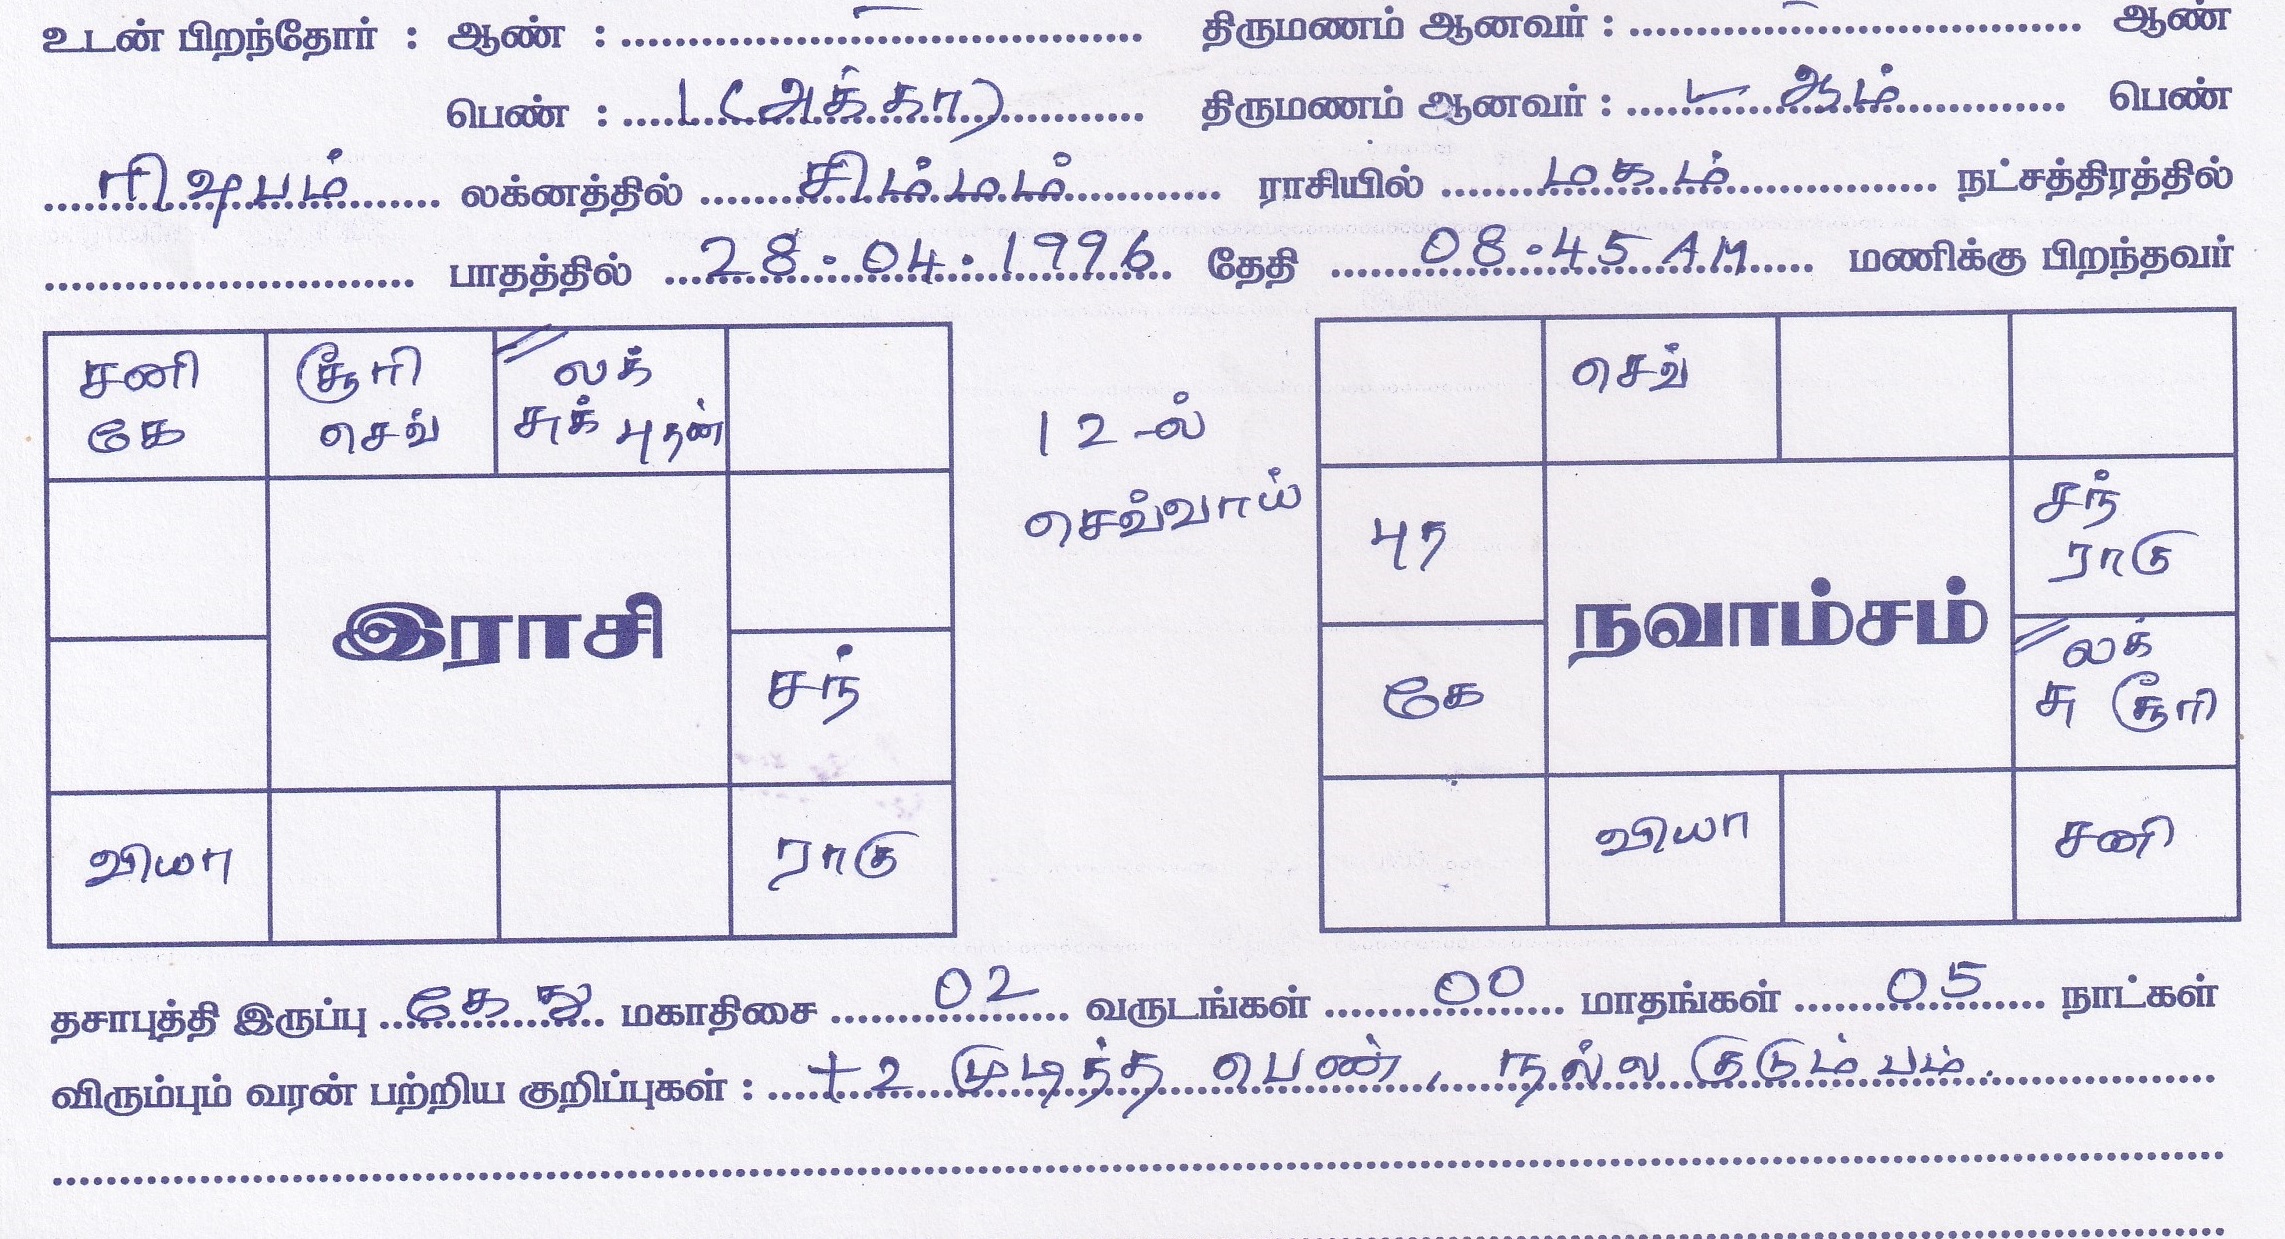 உடன் பிறந்தோர் : ஆண் : – திருமணம் ஆனவர் : – ஆண்
பெண் : 1 (அக்கா) திருமணம் ஆனவர் : ஆம் பெண்
ரிஷபம் லக்னத்தில் சிம்மம் ராசியில் மகம் நட்சத்திரத்தில்
பாதத்தில் 28.04.1996 தேதி 08.45 AM மணிக்கு பிறந்தவர்
சனி
கே
சூரி
செவ்
லக்
சுக் புதன்
சந்
ராகு
வியா
இராசி
12-ல்
செவ்வாய்
செவ்
சந்
ராகு
லக்
சு சூரி
சனி
வியா
கே
புத
நவாம்சம்
தசாபுத்தி இருப்பு கேது மகாதிசை 02 வருடங்கள் 00 மாதங்கள் 05 நாட்கள்
விரும்பும் வரன் பற்றிய குறிப்புகள் : +2 முடிந்த பெண், நல்ல குடும்பம்.